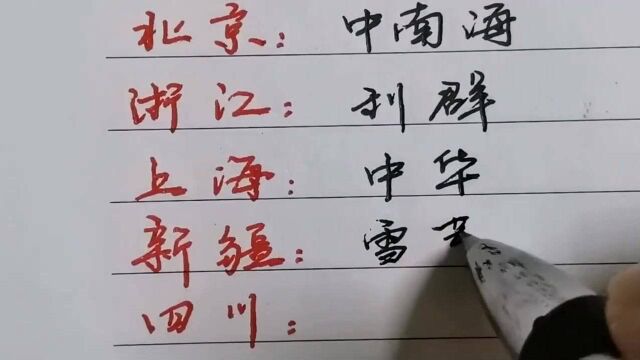 北京：中南海
浙江：利群
上海：中华
新疆：雪
四川：